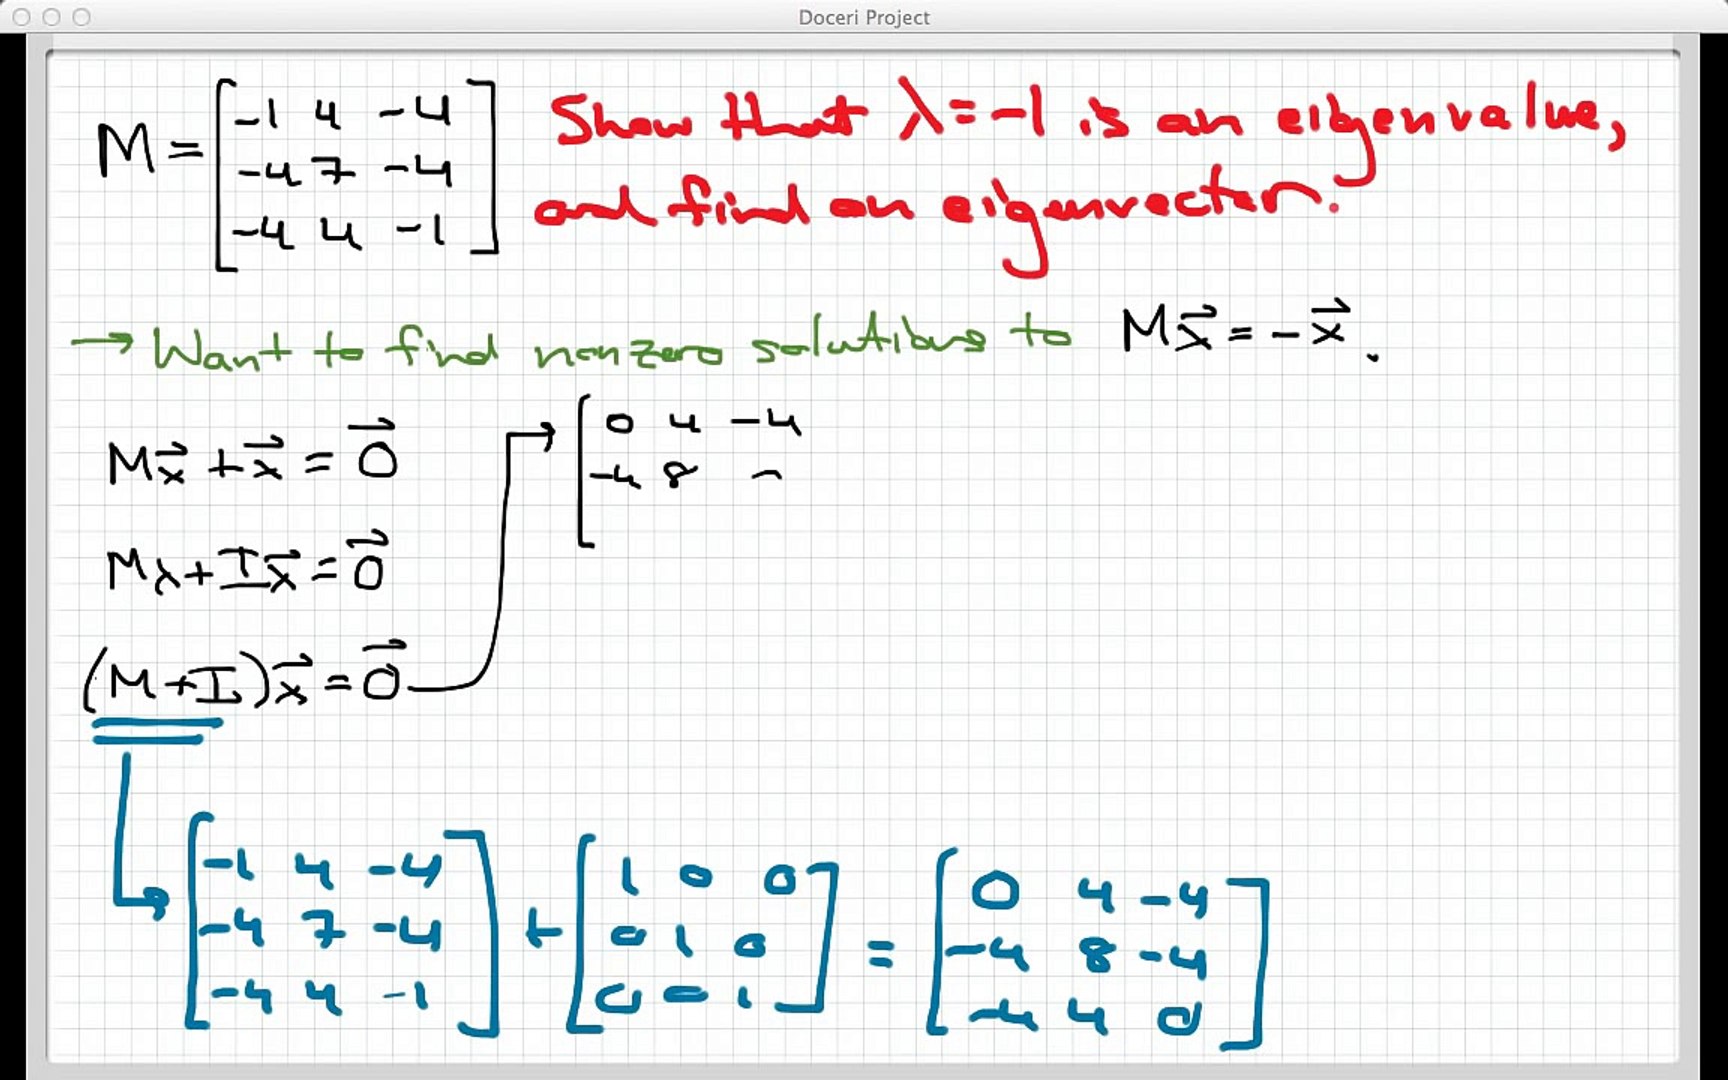 Doceri Project
M = [ -1 4 -4
-4 7 -4
-4 4 -1 ]
Show that λ = -1 is an eigenvalue,
and find an eigenvector.
→ Want to find nonzero solutions to Mx⃗ = -x⃗.
Mx⃗ + x⃗ = 0⃗
Mx + Ix⃗ = 0⃗
(M + I)x⃗ = 0⃗
→ [ 0 4 -4
-4 8
[ -1 4 -4
-4 7 -4
-4 4 -1 ]
+
[ 1 0 0
0 1 0
0 0 1 ]
=
[ 0 4 -4
-4 8 -4
-4 4 0 ]